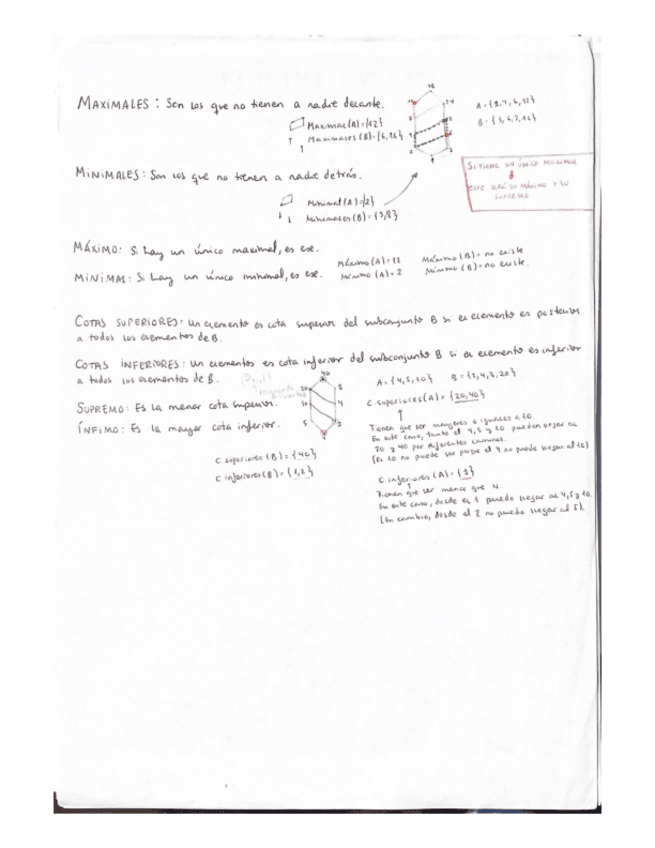 MAXIMALES: Son los que no tienen a nadie delante.
Maximal (A)={12}
A={2,4,6,12}
MINIMALES: Son los que no tienen a nadie detrás.
SI TIENE UN ÚNICO MAXIMAL
ESTE SERÁ SU MÁXIMO Y SU
SUPREMO
Minimal (A)={2}
Minimales (B)={3,8}
MÁXIMO: Si hay un único maximal, es ese.
Máximo (A)=12 Máximo (B)= no existe
MINIMAL: Si hay un único minimal, es ese.
Mínimo (A)=2 Mínimo (B)= no existe.
COTAS SUPERIORES: Un elemento es cota superior del subconjunto B si el elemento es posterior
a todos los elementos de B.
COTAS INFERIORES: Un elementos es cota inferior del subconjunto B si el elemento es inferior
a todos los elementos de B.
A={4,5,10} B={2,4,8,20}
SUPREMO: Es la menor cota superior.
C. superiores (A)= {20,40}
ÍNFIMO: Es la mayor cota inferior.
Tienen que ser mayores o iguales a 10.
En este caso, tanto el 4, 5 y 10 pueden llegar al
20 y 40 por diferentes caminos.
(El 10 no puede ser porque el 4 no puede llegar al 10)
C. superiores (B)= {40}
C inferiores (B)= {1,2}
C. inferiores (A)= {1}
Tienen que ser menor que 4.
En este caso, desde el 1 puedo llegar al 4, 5 y 10.
(En cambio, desde el 2 no puedo llegar al 5).